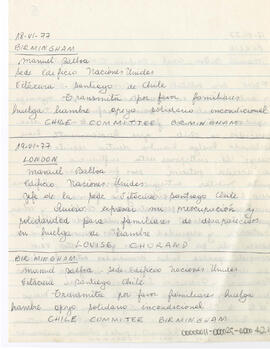 18-VI-77
BIRMINGHAM
Manuel Balboa
Sede Edificio Naciones Unidas
Vitacura - Santiago de Chile
Transmita por favor familiares
huelga hambre apoyo solidario incondicional
CHILE COMMITTEE BIRMINGHAM
19-VI-77
LONDON
Manuel Balboa
Edificio Naciones Unidas
Jefe de la sede Vitacura Santiago Chile
Quiero expresar mi preocupación y
solidaridad para familiares de desaparecidos
en huelga de hambre
LOUISE CHORAND
BIRMINGHAM
Manuel Balboa sede edificio Naciones Unidas
Vitacura Santiago Chile
Transmita por favor familiares huelga
hambre apoyo solidario incondicional
CHILE COMMITEE BIRMINGHAM